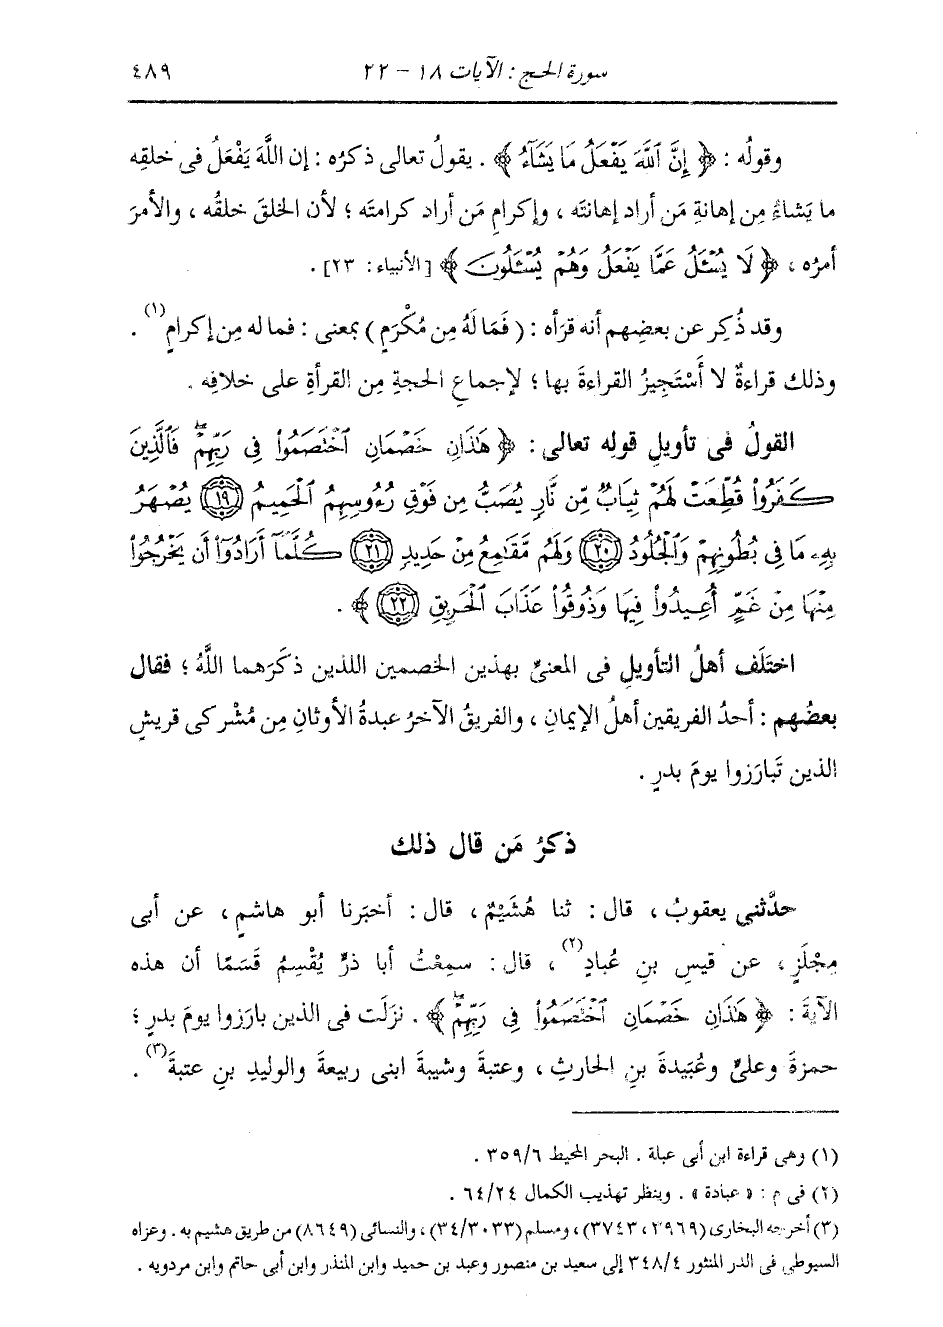 سورة الحج : الآيات ١٨ – ٢٢ ٤٨٩
وقولُه : ﴿ إِنَّ ٱللَّهَ يَفْعَلُ مَا يَشَآءُ ﴾ . يقولُ تعالى ذكرُه : إن اللَّهَ يَفْعَلُ فى خلقِه
ما يَشاءُ مِن إهانةِ مَن أراد إهانتَه ، وإكرامِ مَن أراد كرامتَه ؛ لأن الخلقَ خلقُه ، والأمرَ
أمرُه ، ﴿ لَا يُسْـَٔلُ عَمَّا يَفْعَلُ وَهُمْ يُسْـَٔلُونَ ﴾ [الأنبياء: ٢٣] .
وقد ذُكِر عن بعضِهم أنه قرَأه : ( فَمَا لَهُ مِن مُكْرَمٍ ) بمعنى : فما له مِن إكرامٍ (١) .
وذلك قراءةٌ لا أَسْتَجِيزُ القراءةَ بها ؛ لإجماعِ الحجةِ مِن القرأةِ على خلافِه .
القولُ فى تأويلِ قوله تعالى : ﴿ هَٰذَانِ خَصْمَانِ ٱخْتَصَمُوا۟ فِى رَبِّهِمْ ۖ فَٱلَّذِينَ
كَفَرُوا۟ قُطِّعَتْ لَهُمْ ثِيَابٌ مِّن نَّارٍ يُصَبُّ مِن فَوْقِ رُءُوسِهِمُ ٱلْحَمِيمُ ﴿١٩﴾ يُصْهَرُ
بِهِۦ مَا فِى بُطُونِهِمْ وَٱلْجُلُودُ ﴿٢٠﴾ وَلَهُم مَّقَـٰمِعُ مِنْ حَدِيدٍ ﴿٢١﴾ كُلَّمَآ أَرَادُوٓا۟ أَن يَخْرُجُوا۟
مِنْهَا مِنْ غَمٍّ أُعِيدُوا۟ فِيهَا وَذُوقُوا۟ عَذَابَ ٱلْحَرِيقِ ﴿٢٢﴾ ﴾ .
اختَلَف أهلُ التأويلِ فى المعنىِّ بهذين الخصمين اللذين ذكَرَهما اللَّهُ ؛ فقال
بعضُهم : أحدُ الفريقين أهلُ الإيمانِ ، والفريقُ الآخرُ عبدةُ الأوثانِ مِن مُشْركى قريشٍ
الذين تَبارَزوا يومَ بدرٍ .
ذكرُ مَن قال ذلك
حدَّثنى يعقوبُ ، قال : ثنا هُشَيْمٌ ، قال : أخبَرنا أبو هاشمٍ ، عن أبى
مِجْلَزٍ ، عن قيسِ بنِ عُبادٍ (٢) ، قال : سمِعْتُ أبا ذرٍّ يُقْسِمُ قَسَمًا أن هذه
الآيةَ : ﴿ هَٰذَانِ خَصْمَانِ ٱخْتَصَمُوا۟ فِى رَبِّهِمْ ۖ ﴾ . نزَلَت فى الذين بارَزوا يومَ بدرٍ ؛
حمزةَ وعلىٍّ وعُبَيدةَ بنِ الحارثِ ، وعتبةَ وشيبةَ ابنى ربيعةَ والوليدِ بنِ عتبةَ (٣) .
(١) وهى قراءة ابن أبى عبلة . البحر المحيط ٣٥٩/٦ .
(٢) فى م : « عبادة » . وينظر تهذيب الكمال ٦٤/٢٤ .
(٣) أخرجه البخارى (٢٩٦٩ ، ٣٧٤٣) ، ومسلم (٣٤/٣٠٣٣) ، والنسائى (٨٦٤٩) من طريق هشيم به . وعزاه
السيوطى فى الدر المنثور ٣٤٨/٤ إلى سعيد بن منصور وعبد بن حميد وابن المنذر وابن أبى حاتم وابن مردويه .